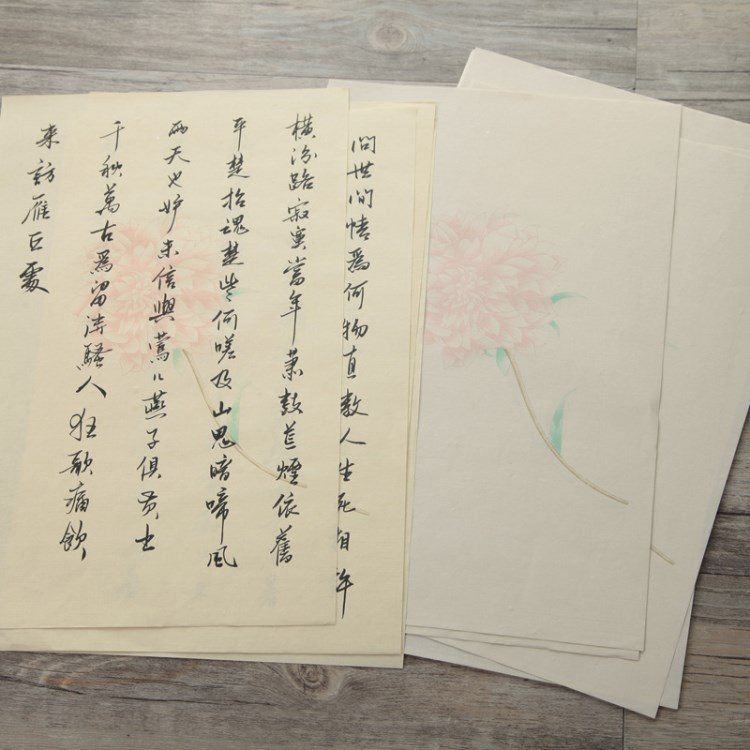 問世間情爲何物直教人生死相許
橫汾路寂寞當年蕭鼓荒煙依舊
平楚招魂楚些何嗟及山鬼暗啼風
雨天也妒未信與鶯儿燕子俱黄土
千秋萬古爲留待騷人狂歌痛飲
来訪雁丘處